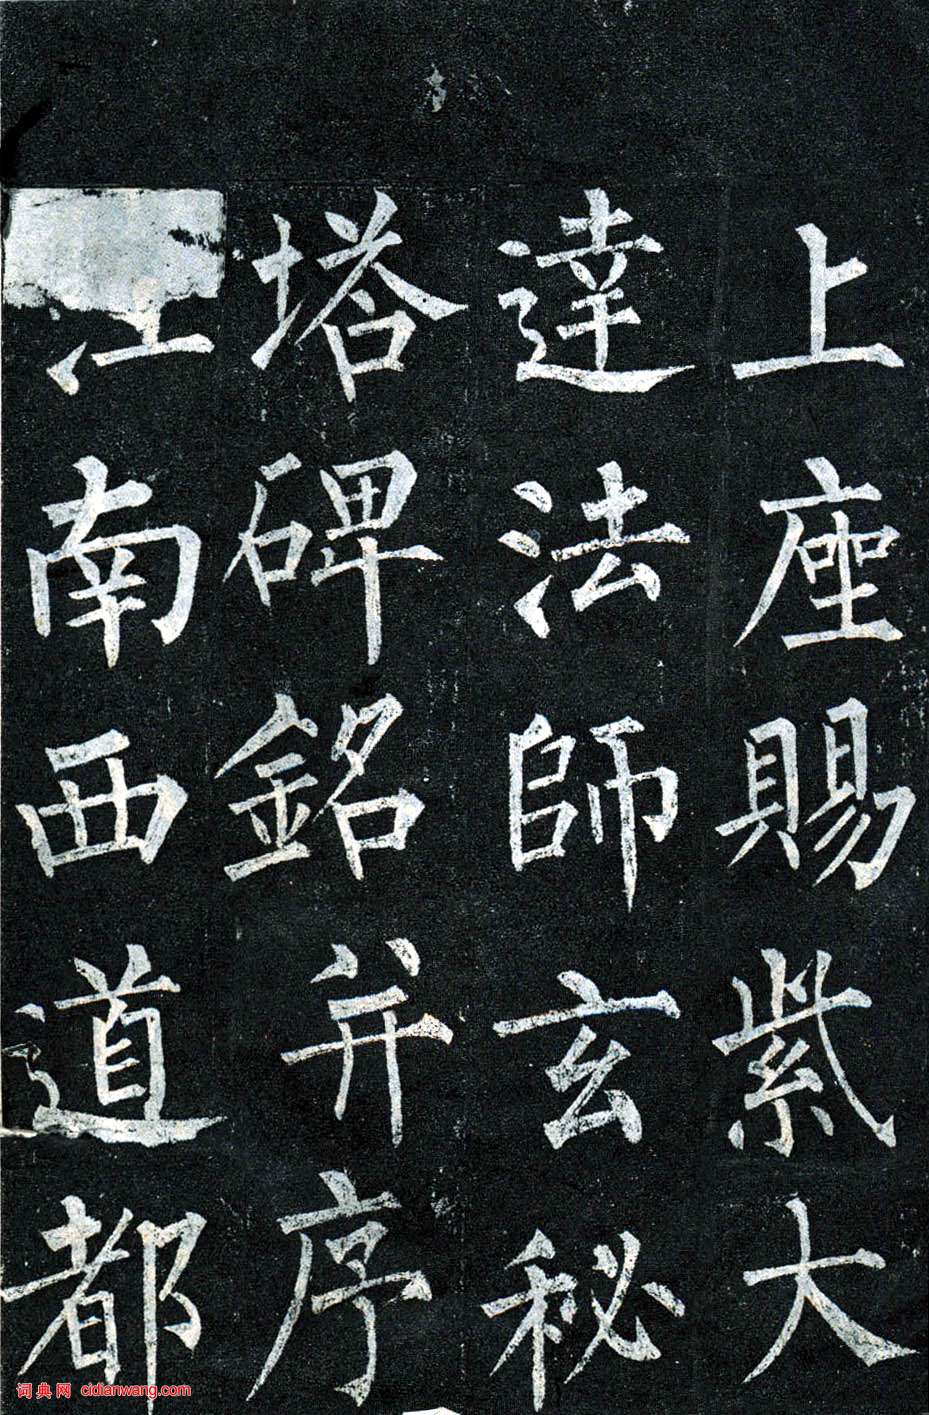 上座賜紫大
達法師玄秘
塔碑銘并序
江南西道都
词典网 cidianwang.com